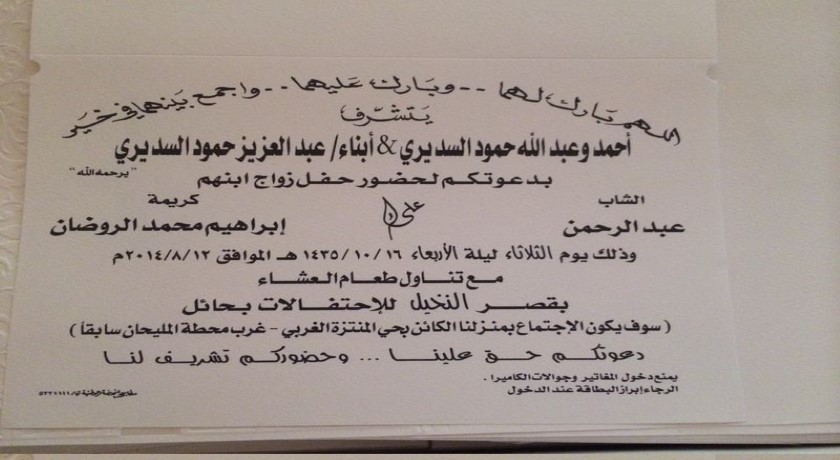 اللهم بارك لهما .. وبارك عليهما .. واجمع بينهما في خير
يتشرف
أحمد وعبد الله حمود السديري & أبناء/ عبد العزيز حمود السديري
"يرحمه الله"
بدعوتكم لحضور حفل زواج ابنهم
الشاب
كريمة
عبد الرحمن
على
إبراهيم محمد الروضان
وذلك يوم الثلاثاء ليلة الأربعاء ١٤٣٥/١٠/١٦ هـ الموافق ٢٠١٤/٨/١٢م
مع تناول طعام العشاء
بقصر النخيل للإحتفالات بحائل
( سوف يكون الإجتماع بمنزلنا الكائن بحي المنتزة الغربي - غرب محطة المليحان سابقاً )
دعوتكم حق علينا ... وحضوركم تشريف لنا
يمنع دخول المفاتير وجوالات الكاميرا .
الرجاء إبراز البطاقة عند الدخول